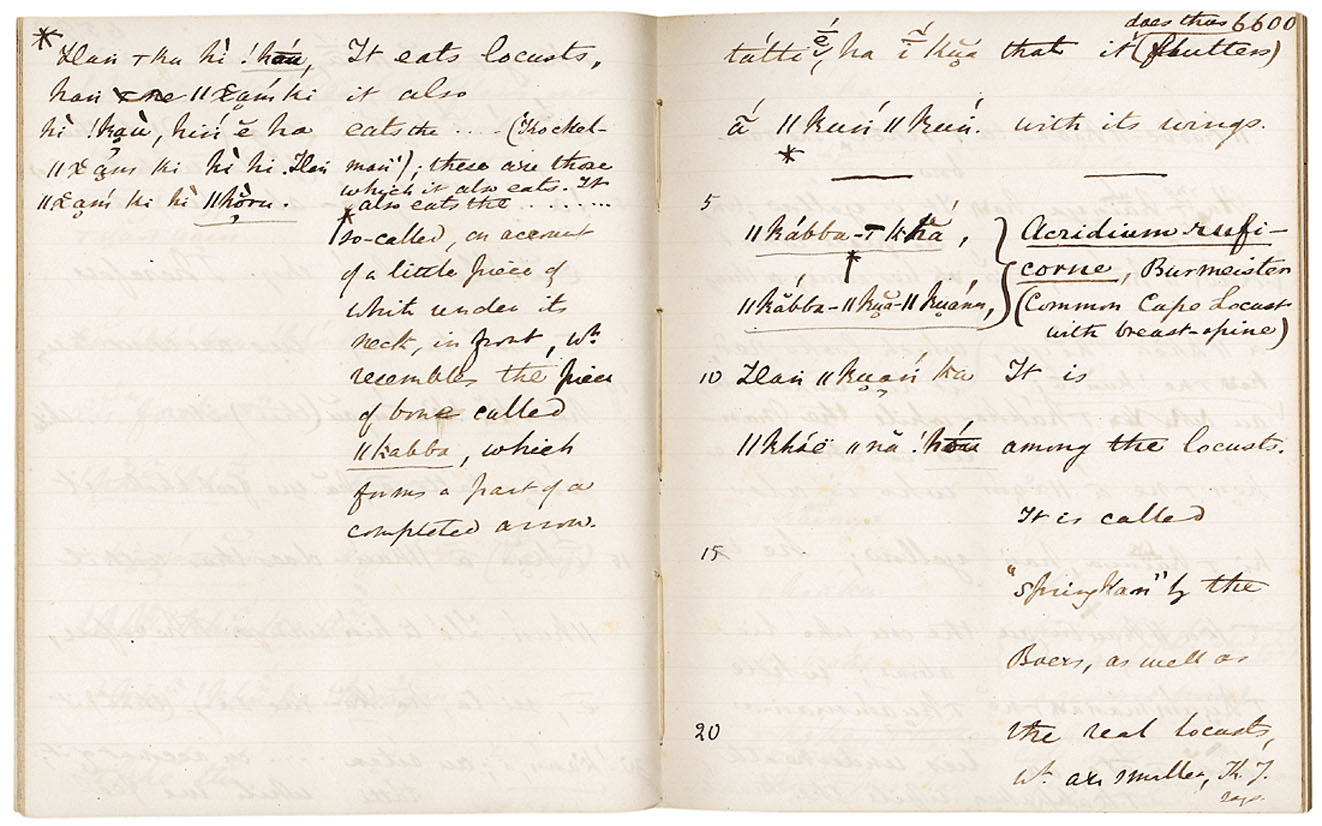 * Han ꞱKu hì !kóu,
han ǁẋa̤m ki
hì !ka̤u̇, hiń ĕ ha
ǁẋa̤m ki hì hi. Han
ǁẋa̤m ki hì ǁhŏru.
It eats locusts,
it also
eats the .... (Kockel-
man'); these are those
which it also eats. It
also eats the ........
* so-called, on account
of a little piece of
white under its
neck, in front, wh.
resembles the piece
of bone called
ǁkabba, which
forms a part of a
completed arrow.
6600
does thus
tátti, ha that it (flutters)
á ǁkuń ǁkuń. with its wings.
*
5
ǁkábba-
*
ǁkăbba-ǁkṷă-ǁkṷánn,
Acridium rufi-
corne, Burmeister
(Common Cape Locust
with breast-spine)
10 Han ǁkṷań ka It is
ǁkhóë ǁnă !kóu among the locusts.
It is called
15
"springkan" by the
Boers, as well as
20 the real locusts,
wh. are smaller, Th. J.
says.